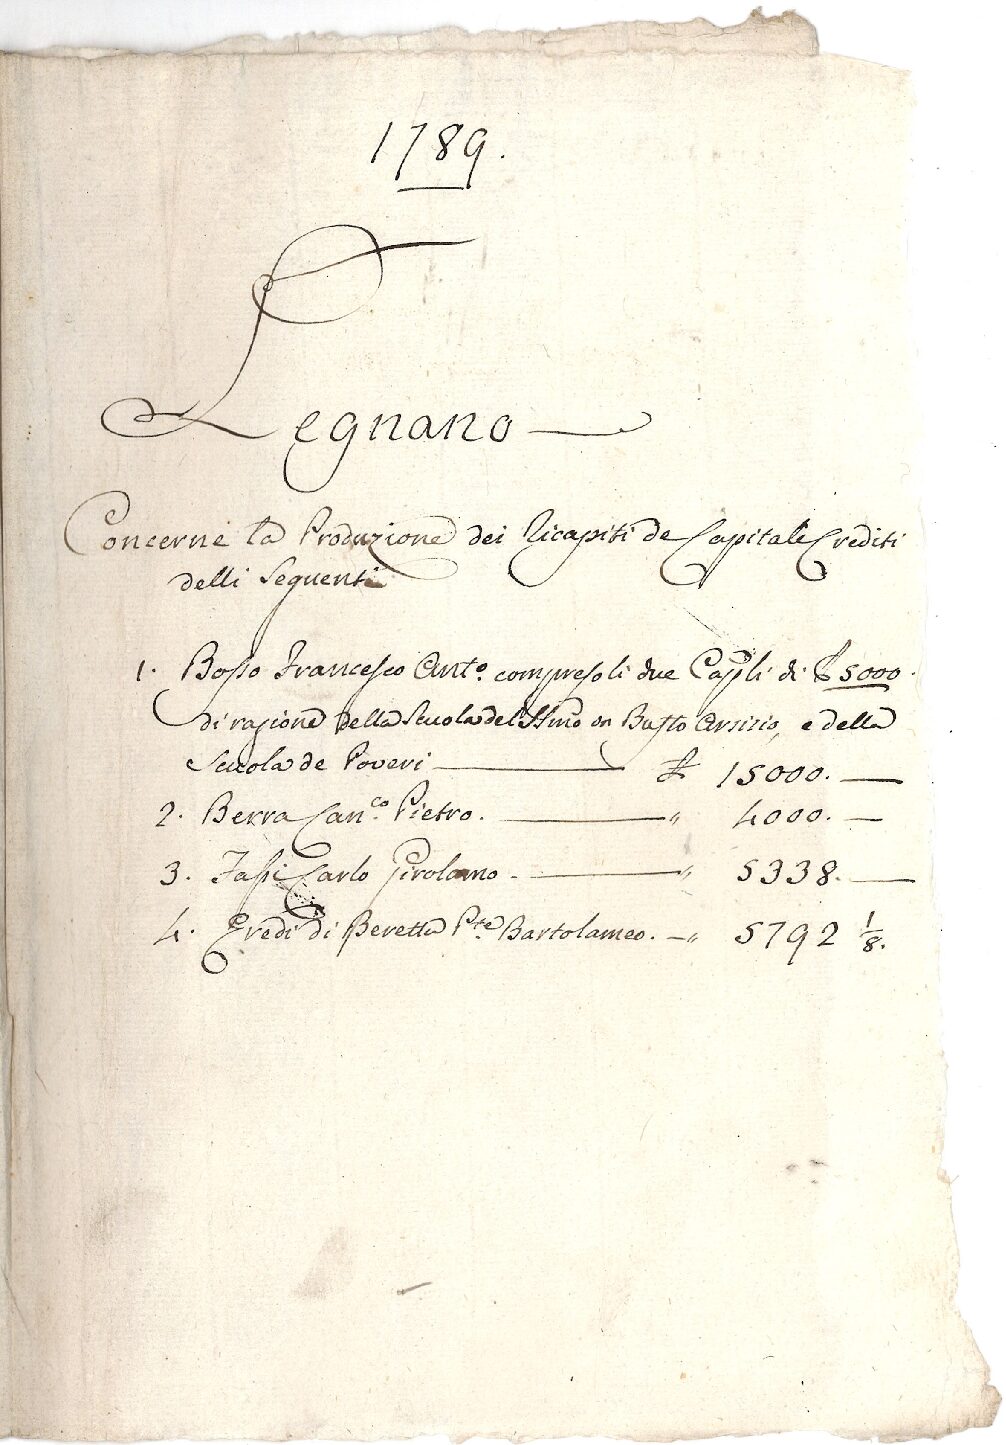 1789.
Legnano
Concerne la Produzione dei Ricapiti de Capitali Crediti
delli Seguenti
1. Bosso Francesco Ant.o compresoli due Cap.li di £ 5000.
di ragione della Scuola del SSmo in Busto Arsizio, e della
Scuola de Poveri — £ 15000. —
2. Berra Can.co Pietro. — " 4000. —
3. Fassi Carlo Girolamo — " 5338. —
4. Eredi di Beretta P.te Bartolameo. — " 5792 1/8.